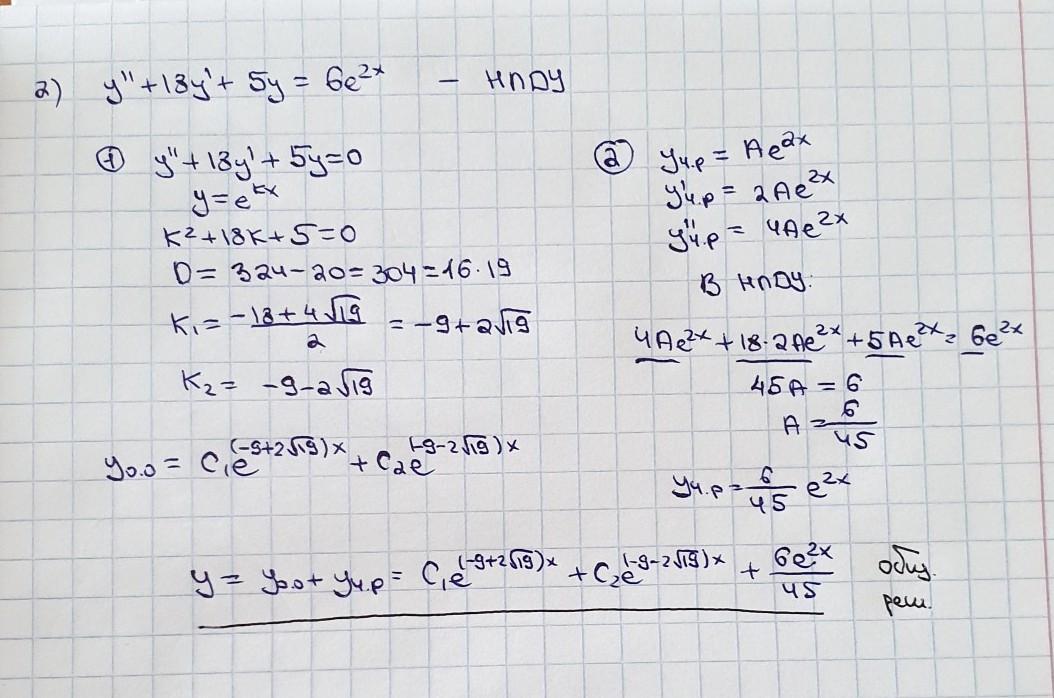 2) y'' + 18y' + 5y = 6e^{2x} – НЛДУ
① y'' + 18y' + 5y = 0
y = e^{kx}
k² + 18k + 5 = 0
D = 324 – 20 = 304 = 16·19
k₁ = \frac{-18 + 4√19}{2} = -9 + 2√19
k₂ = -9 - 2√19
y₀.₀ = C₁e^{(-9+2√19)x} + C₂e^{(-9-2√19)x}
② yч.р = Ae^{2x}
y'ч.р = 2Ae^{2x}
y''ч.р = 4Ae^{2x}
В НЛДУ:
4Ae^{2x} + 18·2Ae^{2x} + 5Ae^{2x} = 6e^{2x}
45A = 6
A = \frac{6}{45}
yч.р = \frac{6}{45} e^{2x}
y = y₀.₀ + yч.р = C₁e^{(-9+2√19)x} + C₂e^{(-9-2√19)x} + \frac{6e^{2x}}{45} общ.
реш.